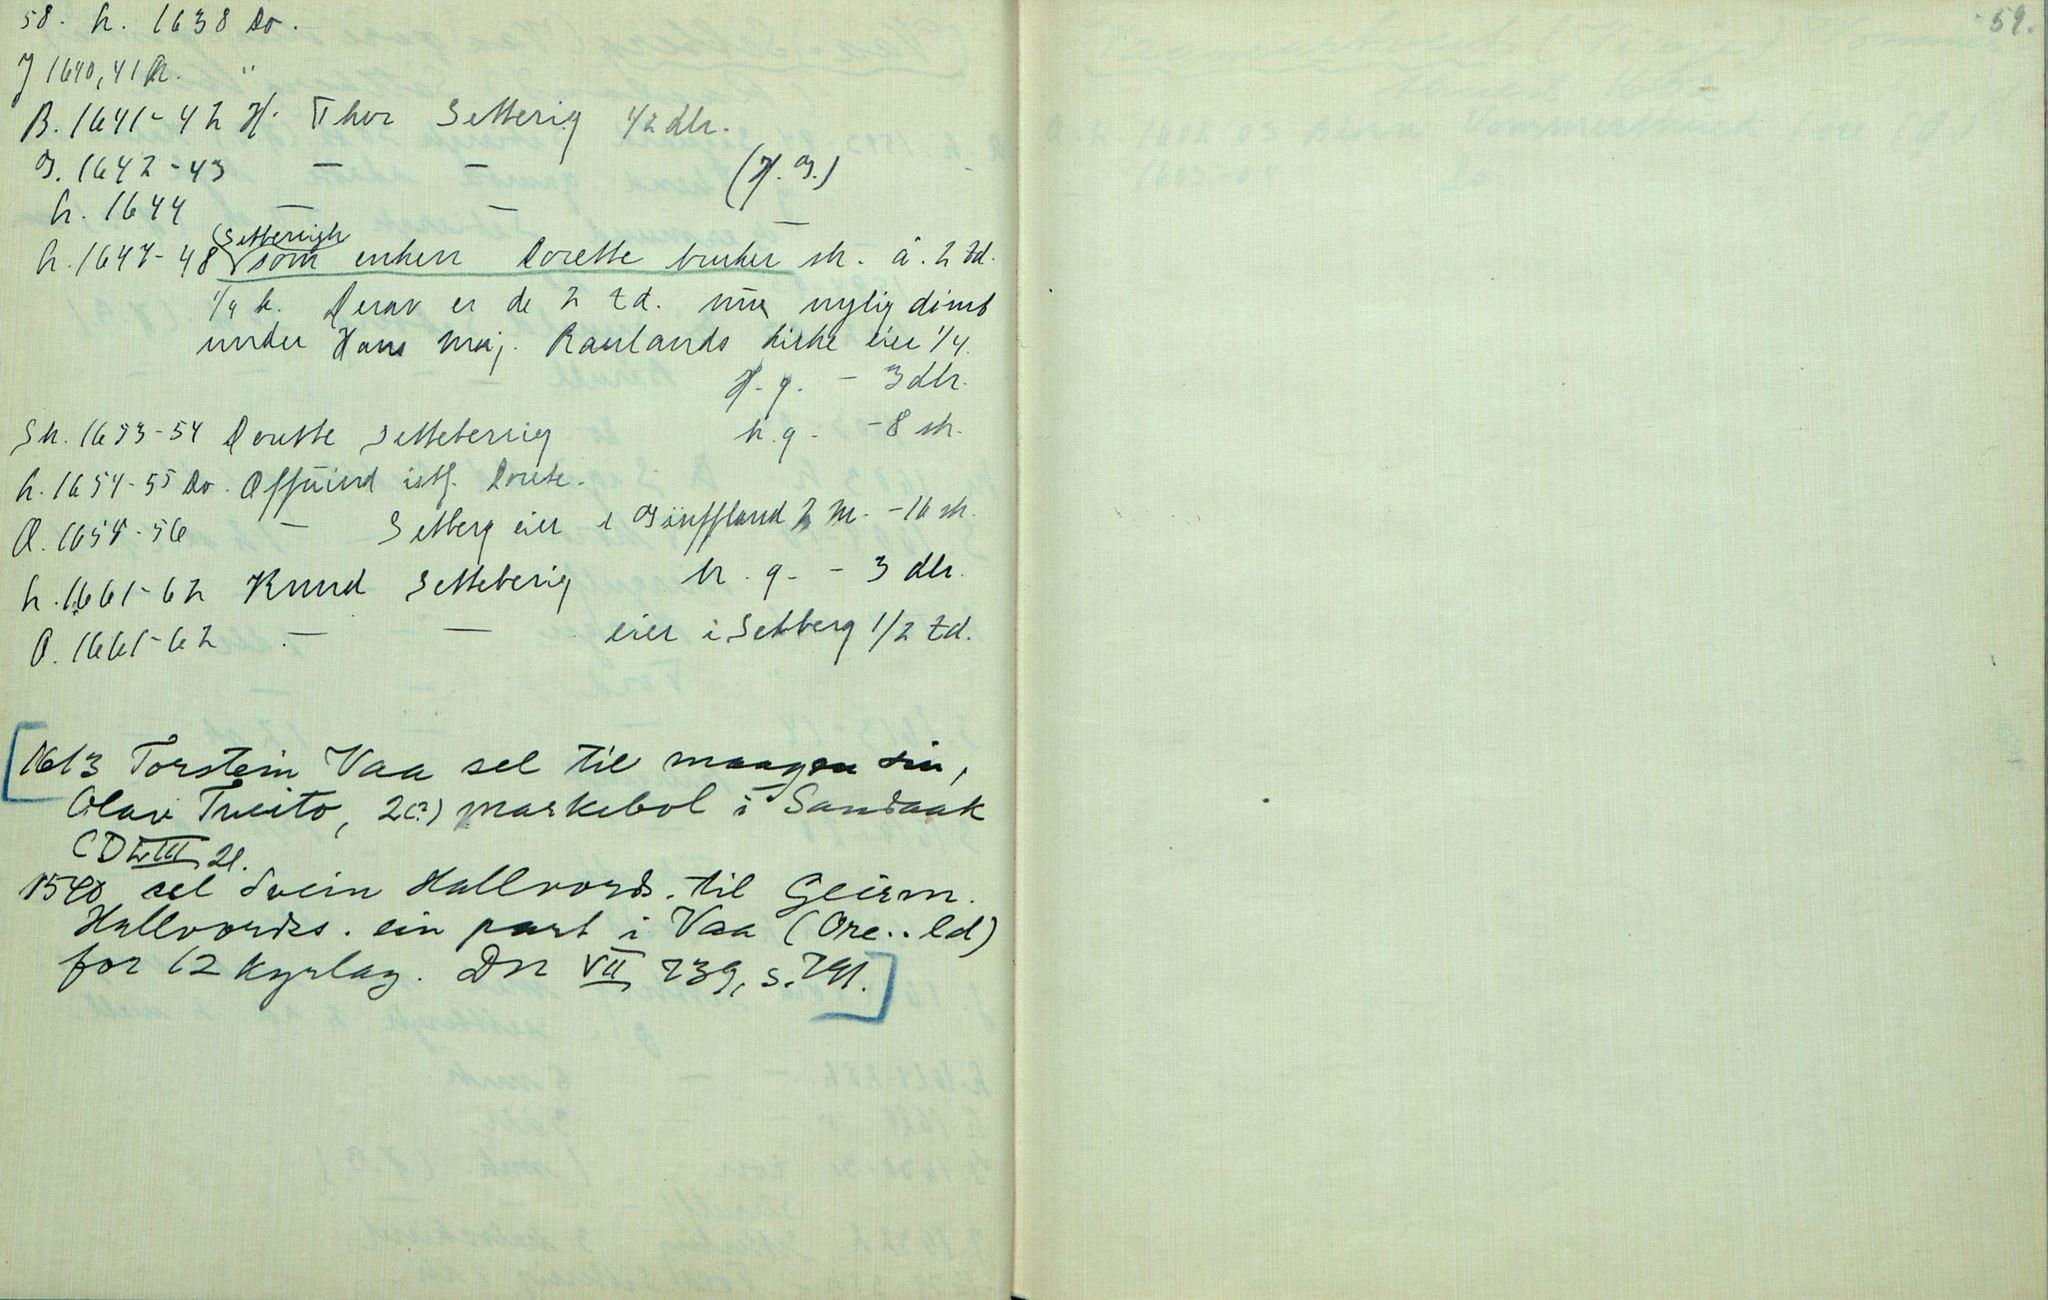 58. h. 1638 Do.
J 1640,41 h. "
B. 1641-42 H. Thor Setterig 1/2 dlr.
J. 1642-43 — — (H. J.)
h. 1644 — — —
h. 1647-48 Setterigh som enken Dorette bruker sk. à. 2 td.
1/4 k. Derav er de 2 td. nua nylig dimt
under Hans Maj. Raulands kirke eier 1/4.
H. g. - 3 dlr.
Sk. 1653-54 Dorette Setteberrig k.g. - 8 sk.
h. 1654-55 Do. Offuind istf. Dorete.
O. 1654-56 — Setberg eier i 2 m. - 16 sk.
h. 1661-62 Knud Setteberig k. g. - 3 dlr.
O. 1661-62 — — eier i Setberg 1/2 td.
[1613 Torstein Vaa sel til maagen sin,
Olav Tveito, 2(?) markebol i Sandaak
CD III 21.
1540 sel Svein Hallvords. til Geirm.
Hallvords. ein part i Vaa (Ore..ld)
for 12 kyrlag. DN VII 739, s. 791.]
59.